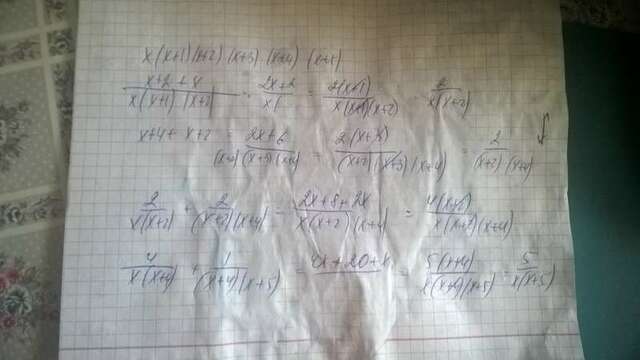 x(x+1)(x+2)(x+3)(x+4)(x+5)
x+2+x / x(x+1)(x+2) = 2x+2 / x( = 2(x+1) / x(x+1)(x+2) = 2 / x(x+2)
x+4+x+2 / (x+2)(x+3)(x+4) = 2x+6 = 2(x+3) / (x+2)(x+3)(x+4) = 2 / (x+2)(x+4)
2 / x(x+2) + 2 / (x+2)(x+4) = 2x+8+2x / x(x+2)(x+4 = 4(x+2) / x(x+2)(x+4)
4 / x(x+4) + 1 / (x+4)(x+5) = 4x+20+x = 5(x+4) / x(x+4)(x+5) = 5 / x(x+5)